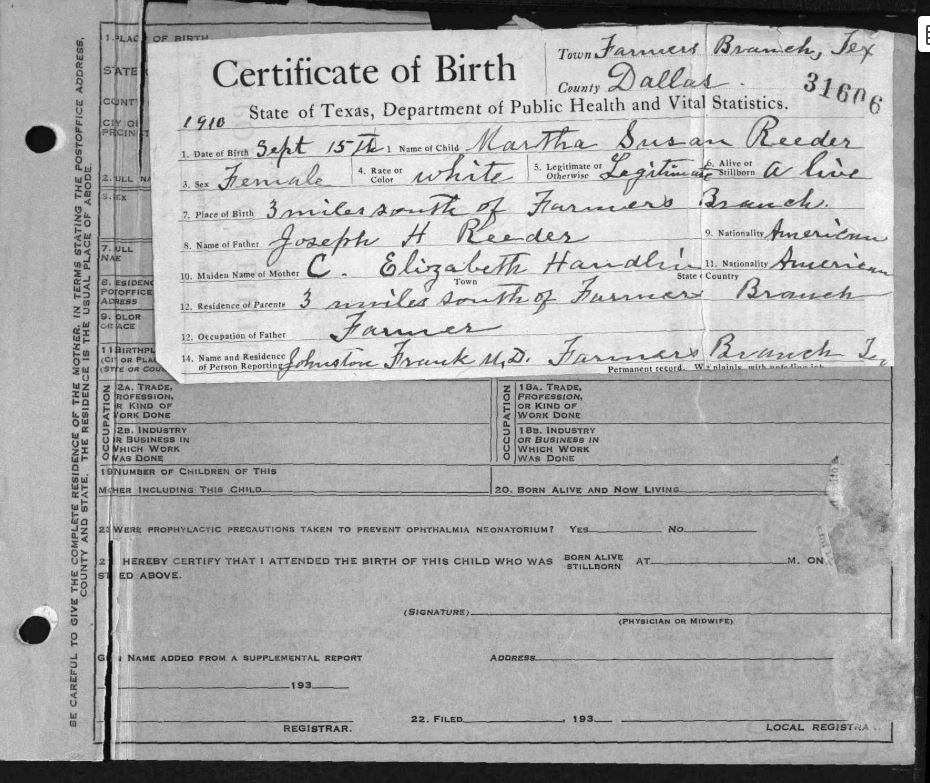 Certificate of Birth
Town Farmers Branch, Tex
County Dallas.
31606
State of Texas, Department of Public Health and Vital Statistics.
1910
1. Date of Birth Sept 15Th 1 Name of Child Martha Susan Reeder
3. Sex Female 4. Race or Color white 5. Legitimate or Otherwise Legitimate 6. Alive or Stillborn a live
7. Place of Birth 3 miles south of Farmers Branch.
8. Name of Father Joseph H Reeder 9. Nationality American
10. Maiden Name of Mother C. Elizabeth Handlin 11. Nationality American
Town State & Country
12. Residence of Parents 3 miles south of Farmers Branch
12. Occupation of Father Farmer
14. Name and Residence of Person Reporting Johnston Frank M.D. Farmers Branch
Permanent record.
1. PLAC OF BIRTH
STATE
COUNT
CIY O
PRCIN
2. ULL NA
3. EX
7. ULL
NAE
8. ESIDENC
POTOFFICE
ADRESS
9. OLOR
OR ACE
11 BIRTHPL
(CIT OR PLA
(STTE OR COU
OCCUPATION
2A. TRADE,
ROFESSION,
R KIND OF
ORK DONE
2B. INDUSTRY
R BUSINESS IN
HICH WORK
AS DONE
OCCUPATION
18A. TRADE,
PROFESSION,
OR KIND OF
WORK DONE
18B. INDUSTRY
OR BUSINESS IN
WHICH WORK
WAS DONE
19 NUMBER OF CHILDREN OF THIS
MOHER INCLUDING THIS CHILD
20. BORN ALIVE AND NOW LIVING
2 WERE PROPHYLACTIC PRECAUTIONS TAKEN TO PREVENT OPHTHALMIA NEONATORIUM? YES NO
2 HEREBY CERTIFY THAT I ATTENDED THE BIRTH OF THIS CHILD WHO WAS BORN ALIVE STILLBORN AT M. ON
ST ED ABOVE.
(SIGNATURE)
(PHYSICIAN OR MIDWIFE)
G N NAME ADDED FROM A SUPPLEMENTAL REPORT
ADDRESS
193
22. FILED , 193
REGISTRAR.
LOCAL REGISTRA
BE CAREFUL TO GIVE THE COMPLETE RESIDENCE OF THE MOTHER, IN TERMS STATING THE POSTOFFICE ADDRESS,
COUNTY AND STATE. THE RESIDENCE IS THE USUAL PLACE OF ABODE.